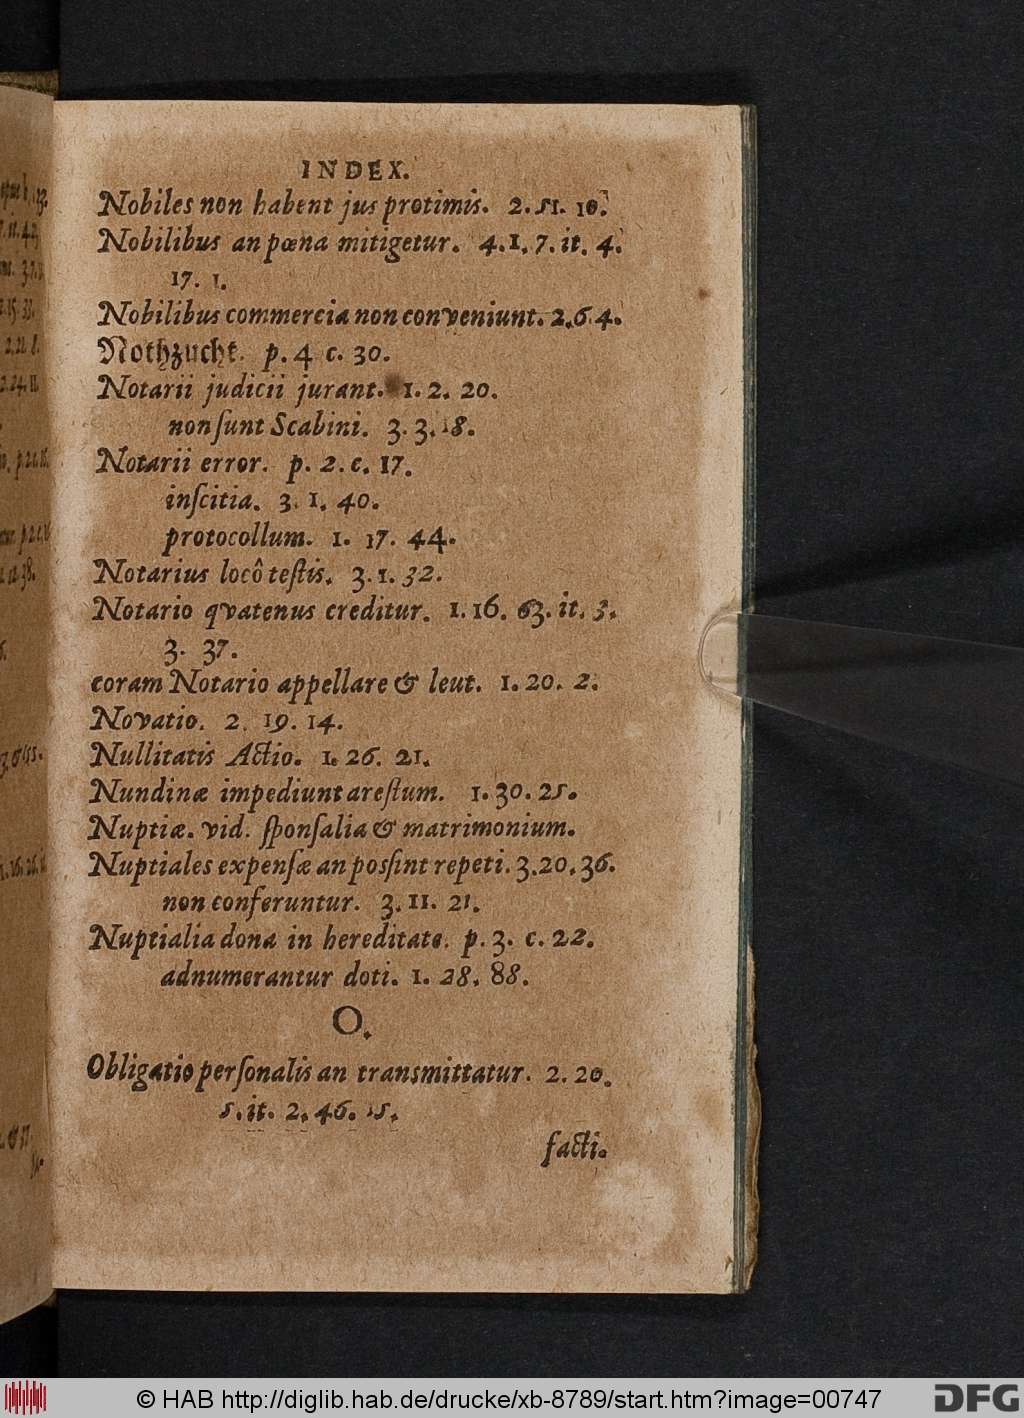 INDEX.
Nobiles non habent jus protimis. 2. 51. 10.
Nobilibus an pœna mitigetur. 4. 1. 7. it. 4.
17. 1.
Nobilibus commercia non conveniunt. 2. 6. 4.
Nothzucht. p. 4 c. 30.
Notarii judicii jurant. 1. 2. 20.
non ſunt Scabini. 3. 3. 18.
Notarii error. p. 2. c. 17.
inſcitia. 3. 1. 40.
protocollum. 1. 17. 44.
Notarius locô teſtis. 3. 1. 32.
Notario qvatenus creditur. 1. 16. 63. it. 3.
3. 37.
coram Notario appellare & leut. 1. 20. 2.
Novatio. 2. 19. 14.
Nullitatis Actio. 1. 26. 21.
Nundinæ impediunt areſtum. 1. 30. 25.
Nuptiæ. vid. ſponſalia & matrimonium.
Nuptiales expenſæ an posſint repeti. 3. 20. 36.
non conferuntur. 3. 11. 21.
Nuptialia dona in hereditate. p. 3. c. 22.
adnumerantur doti. 1. 28. 88.
O.
Obligatio perſonalis an transmittatur. 2. 20.
5. it. 2. 46. 15.
facti.
© HAB http://diglib.hab.de/drucke/xb-8789/start.htm?image=00747
DFG